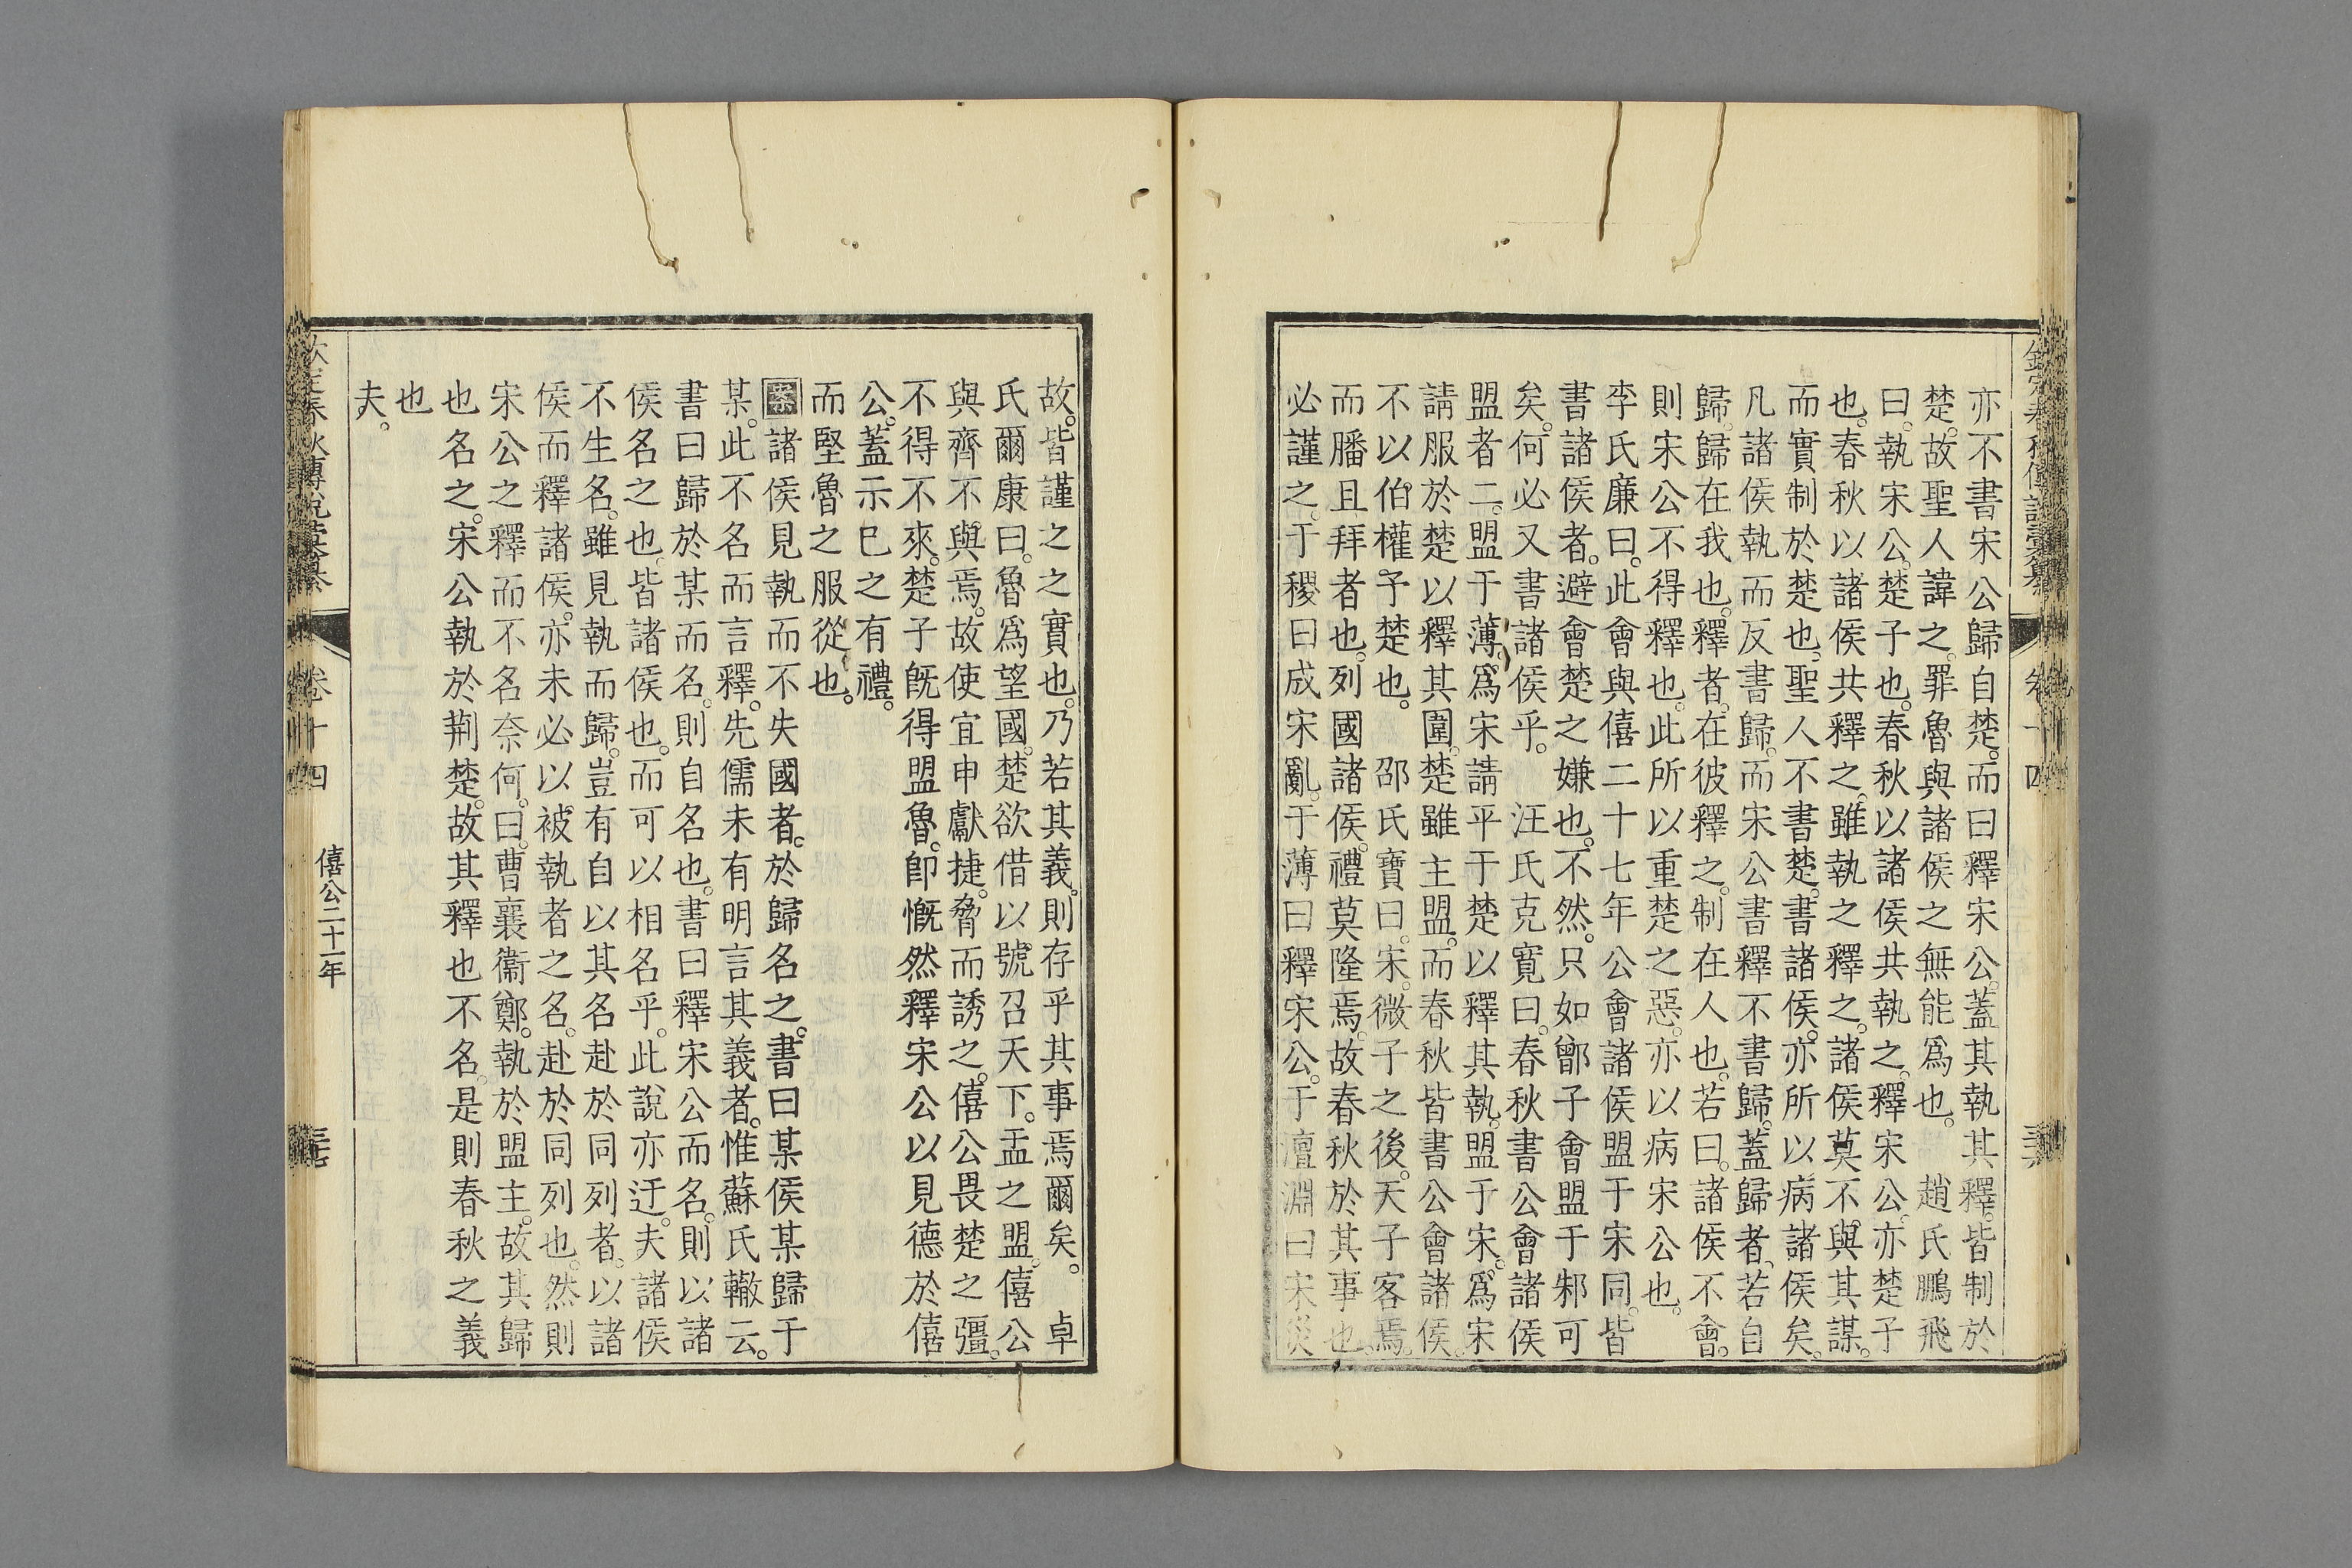 亦不書宋公歸自楚。而曰釋宋公。蓋其執其釋。皆制於
楚。故聖人諱之。罪魯與諸侯之無能爲也。　趙氏鵬飛
曰。執宋公。楚子也。春秋以諸侯共執之。釋宋公。亦楚子
也。春秋以諸侯共釋之。雖執之釋之。諸侯莫不與其謀。
而實制於楚也。聖人不書楚。書諸侯。亦所以病諸侯矣。
凡諸侯執而反書歸。而宋公書釋不書歸。蓋歸者。若自
歸。歸在我也。釋者。在彼釋之。制在人也。若曰。諸侯不會。
則宋公不得釋也。此所以重楚之惡。亦以病宋公也。
李氏廉曰。此會與僖二十七年公會諸侯盟于宋同。皆
書諸侯者。避會楚之嫌也。不然。只如鄫子會盟于邾可
矣。何必又書諸侯乎。　汪氏克寬曰。春秋書公會諸侯
盟者二。盟于薄。爲宋請平于楚以釋其執。盟于宋。爲宋
請服於楚以釋其圍。楚雖主盟。而春秋皆書公會諸侯。
不以伯權予楚也。　邵氏寶曰。宋。微子之後。天子客焉。
而膰且拜者也。列國諸侯。禮莫隆焉。故春秋於其事也。
必謹之。于稷曰成宋亂。于薄曰釋宋公。于澶淵曰宋災
故。皆謹之之實也。乃若其義。則存乎其事焉爾矣。　卓
氏爾康曰。魯爲望國。楚欲借以號召天下。盂之盟。僖公
與齊不與焉。故使宜申獻捷。脅而誘之。僖公畏楚之彊。
不得不來。楚子旣得盟魯。卽慨然釋宋公以見德於僖
公。蓋示已之有禮。
而堅魯之服從也。
案諸侯見執而不失國者。於歸名之。書曰某侯某歸于
某。此不名而言釋。先儒未有明言其義者。惟蘇氏轍云。
書曰歸於某而名。則自名也。書曰釋宋公而名。則以諸
侯名之也。皆諸侯也。而可以相名乎。此說亦迂。夫諸侯
不生名。雖見執而歸。豈有自以其名赴於同列者。以諸
侯而釋諸侯。亦未必以被執者之名。赴於同列也。然則
宋公之釋而不名奈何。曰。曹襄衞鄭。執於盟主。故其歸
也名之。宋公執於荆楚。故其釋也不名。是則春秋之義
也
夫。
卷十四　僖公二十一年